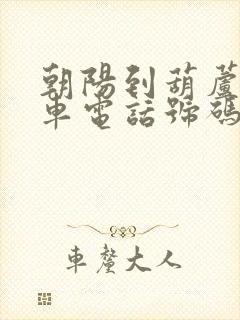 朝陽到葫蘆
車電話號碼
車釐大人